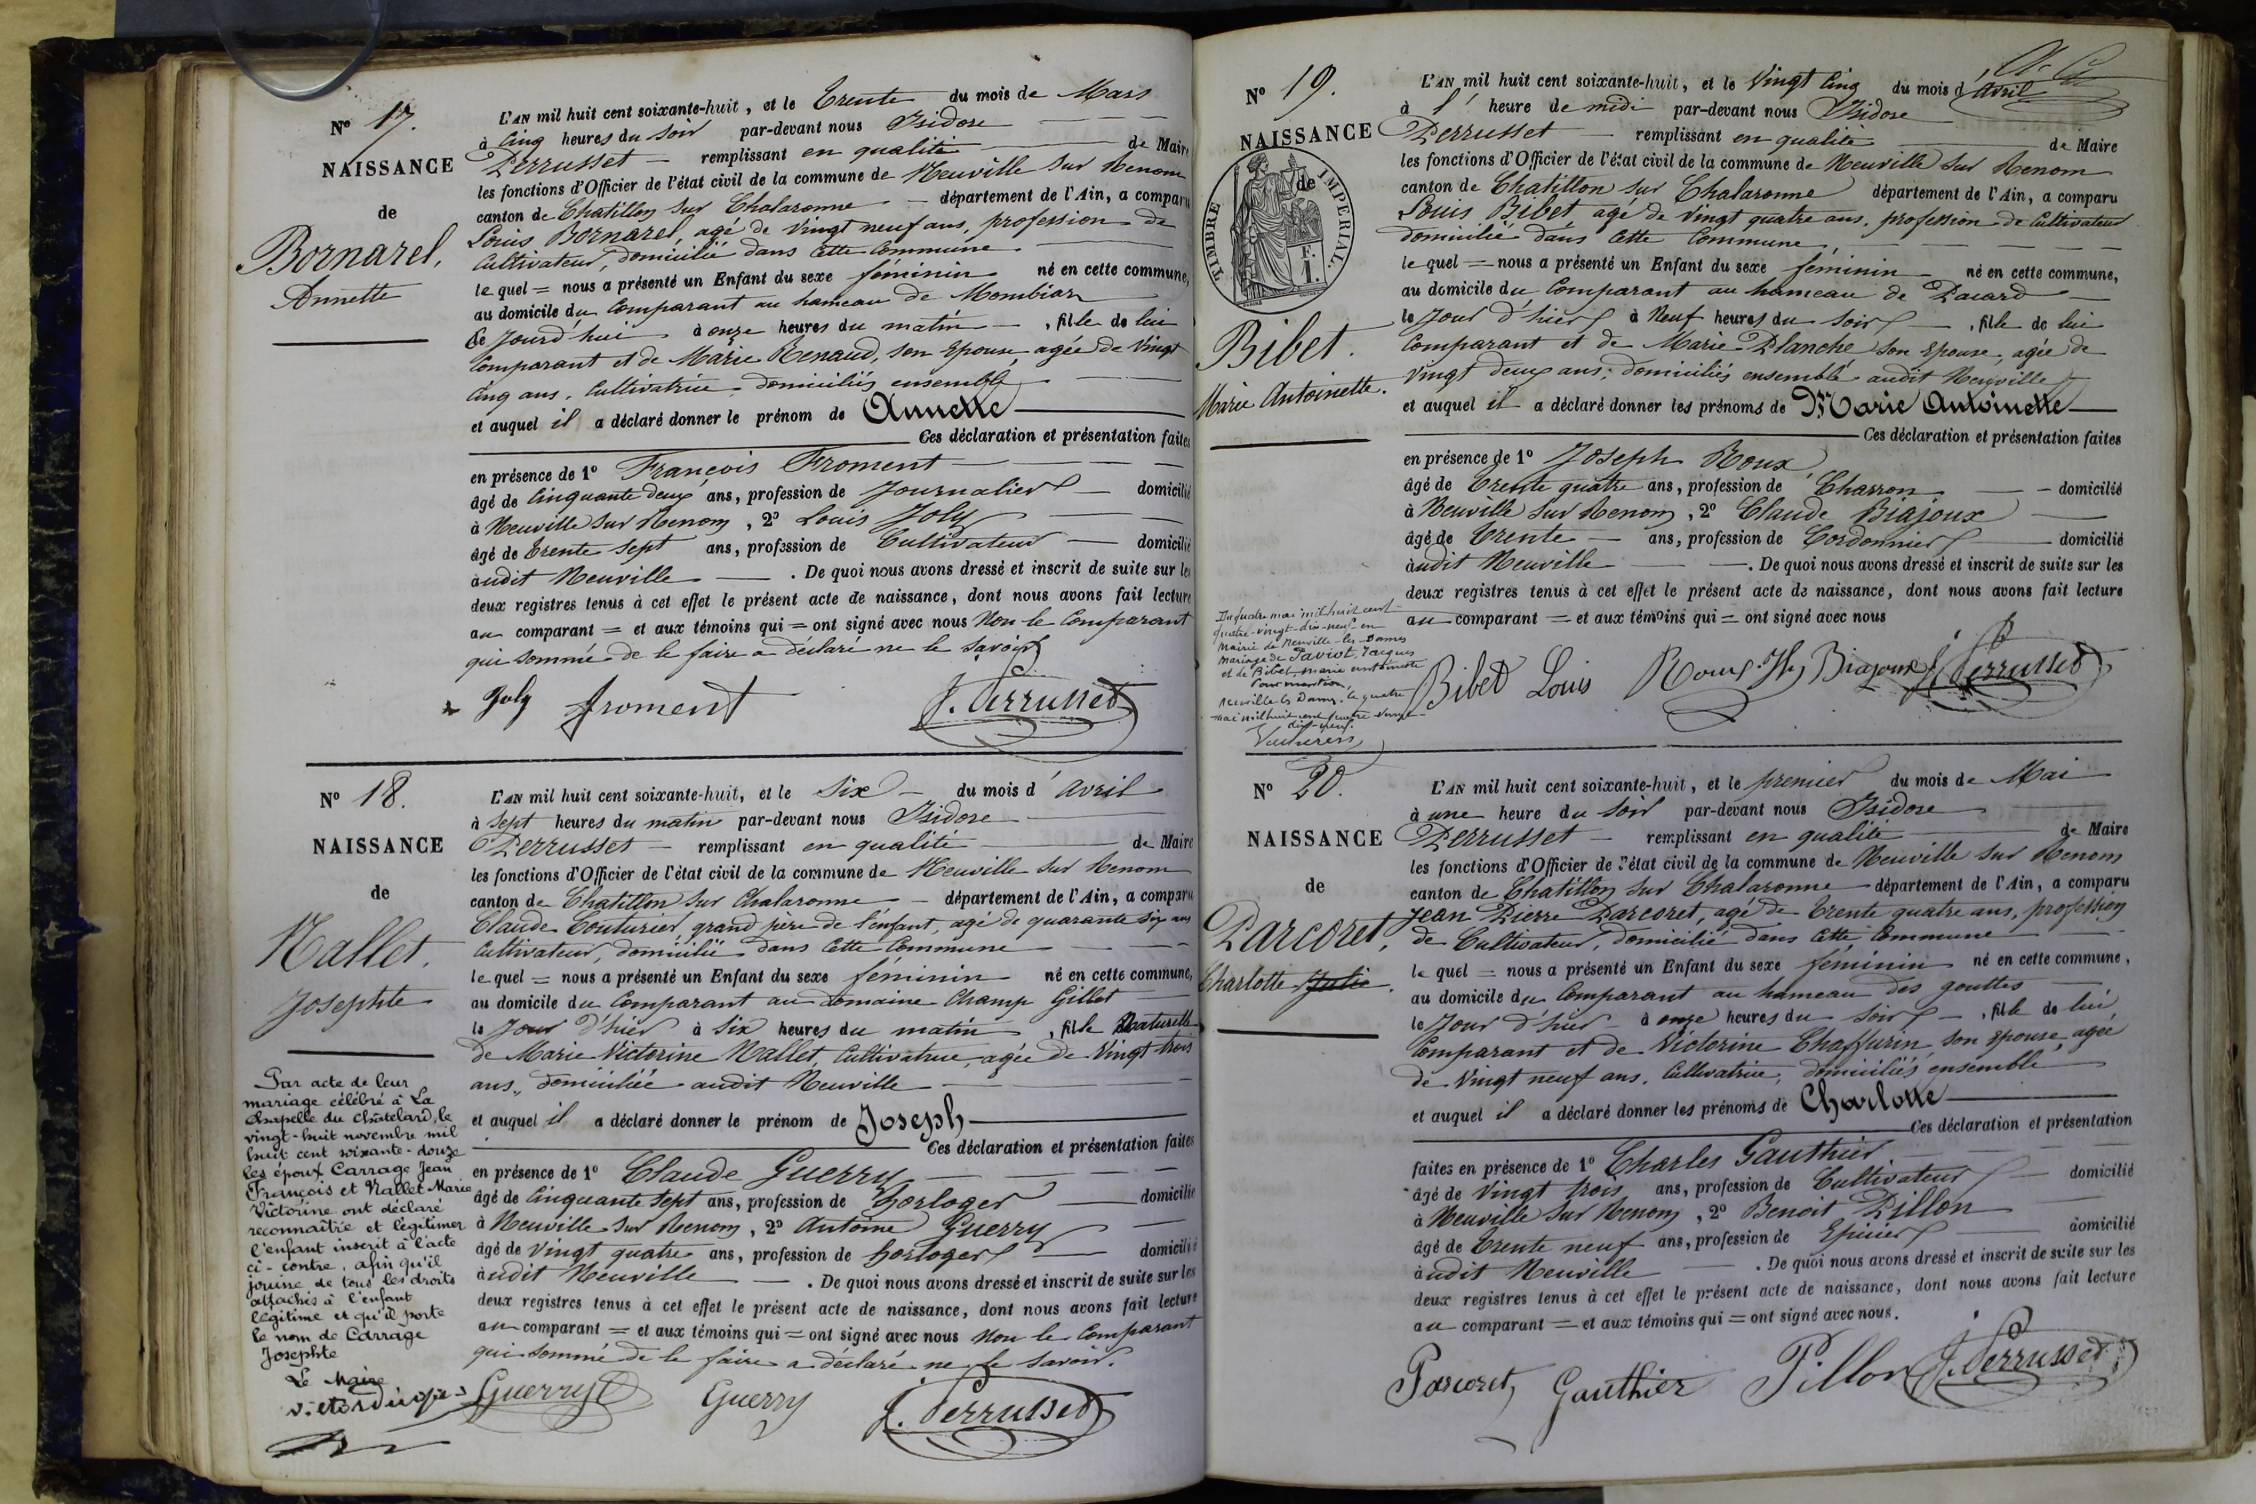 Nº 17.
NAISSANCE
de
Bornarel,
Annette
L'AN mil huit cent soixante-huit, et le Trente du mois de Mars
à Cinq heures du Soir par-devant nous Isidore
Perrusset remplissant en qualité de Maire
les fonctions d'Officier de l'état civil de la commune de Neuville sur Renom
canton de Chatillon sur Chalaronne département de l'Ain, a comparu
Louis Bornarel, agé de Vingt neuf ans, profession de
Cultivateur, domicilié dans Cette Commune
le quel = nous a présenté un Enfant du sexe féminin né en cette commune,
au domicile du Comparant au hameau de Mombian
Ce Jourd'hui à onze heures du matin, fille de lui
Comparant et de Marie Renaud, son Epouse, agée de Vingt
Cinq ans, Cultivatrice, domiciliés ensemble
et auquel il a déclaré donner le prénom de Annette
Ces déclaration et présentation faites
en présence de 1º François Froment
âgé de Cinquante deux ans, profession de Journalier domicilié
à Neuville sur Renom, 2º Louis Joly
âgé de Trente sept ans, profession de Cultivateur domicilié
audit Neuville. De quoi nous avons dressé et inscrit de suite sur les
deux registres tenus à cet effet le présent acte de naissance, dont nous avons fait lecture
au comparant = et aux témoins qui = ont signé avec nous Non le Comparant
qui sommé de le faire a déclaré ne le Savoir
Joly froment J. Perrusset
Nº 18.
NAISSANCE
de
Nallet.
Josephte
Par acte de leur
mariage célébré à La
Chapelle du Châtelard, le
vingt-huit novembre mil
huit cent soixante-douze
les époux Carrage Jean
François et Nallet Marie
Victorine ont déclaré
reconnaître et légitimer
l'enfant inscrit à l'acte
ci-contre, afin qu'il
jouisse de tous les droits
attachés à l'enfant
légitime et qu'il porte
le nom de Carrage
Josephte
Le Maire
L'AN mil huit cent soixante-huit, et le Six du mois d'Avril
à Sept heures du matin par-devant nous Isidore
Perrusset remplissant en qualité de Maire
les fonctions d'Officier de l'état civil de la commune de Neuville sur Renom
canton de Chatillon sur Chalaronne département de l'Ain, a comparu
Claude Couturier, grand père de l'enfant, agé de quarante six ans
Cultivateur, domicilié dans Cette Commune
le quel = nous a présenté un Enfant du sexe féminin né en cette commune,
au domicile du Comparant au domaine Champ Gillet
le Jour d'hier à Six heures du matin, fille Naturelle
de Marie Victorine Nallet Cultivatrice, agée de Vingt trois
ans, domiciliée audit Neuville
et auquel il a déclaré donner le prénom de Joseph
Ces déclaration et présentation faites
en présence de 1º Claude Guerry
âgé de Cinquante Sept ans, profession de horloger domicilié
à Neuville sur Renom, 2º Antoine Guerry
âgé de Vingt quatre ans, profession de horloger domicilié
audit Neuville. De quoi nous avons dressé et inscrit de suite sur les
deux registres tenus à cet effet le présent acte de naissance, dont nous avons fait lecture
au comparant = et aux témoins qui = ont signé avec nous Non le Comparant
qui Sommé de le faire a déclaré ne le Savoir.
Guerry Guerry J. Perrusset
Nº 19.
NAISSANCE
de
TIMBRE IMPERIAL.
F. 1.
Bibet.
Marie Antoinette.
Du quatre mai mil huit cent
quatre-vingt-dix-neuf en
Mairie de Neuville-les-Dames
mariage de Paviot, Jacques
et de Bibet Marie Antoinette
Pour mention,
Neuville les Dames le quatre
mai mil huit cent quatre vingt
dix-neuf.
L'AN mil huit cent soixante-huit, et le Vingt Cinq du mois d'Avril
à l'heure de midi par-devant nous Isidore
Perrusset remplissant en qualité de Maire
les fonctions d'Officier de l'état civil de la commune de Neuville sur Renom
canton de Chatillon sur Chalaronne département de l'Ain, a comparu
Louis Bibet agé de Vingt quatre ans, profession de Cultivateur
domicilié dans Cette Commune,
le quel = nous a présenté un Enfant du sexe féminin né en cette commune,
au domicile du Comparant au hameau de Pacard
le Jour d'hier à Neuf heures du Soir, fille de lui
Comparant et de Marie Planche, Son Epouse, agée de
Vingt deux ans, domiciliés ensemble audit Neuville
et auquel il a déclaré donner les prénoms de Marie Antoinette
Ces déclaration et présentation faites
en présence de 1º Joseph Roux
âgé de Trente quatre ans, profession de Charron domicilié
à Neuville sur Renom, 2º Claude Biajoux
âgé de Trente ans, profession de Cordonnier domicilié
audit Neuville. De quoi nous avons dressé et inscrit de suite sur les
deux registres tenus à cet effet le présent acte de naissance, dont nous avons fait lecture
au comparant = et aux témoins qui = ont signé avec nous
Bibet Louis Roux Jh Biajoux J. Perrusset
Nº 20.
NAISSANCE
de
Parcoret,
Charlotte Julie.
L'AN mil huit cent soixante-huit, et le premier du mois de Mai
à une heure du Soir par-devant nous Isidore
Perrusset remplissant en qualité de Maire
les fonctions d'Officier de l'état civil de la commune de Neuville sur Renom
canton de Chatillon sur Chalaronne département de l'Ain, a comparu
Jean Pierre Parcoret, agé de Trente quatre ans, profession
de Cultivateur, domicilié dans Cette Commune
le quel = nous a présenté un Enfant du sexe féminin né en cette commune,
au domicile du Comparant au hameau des gouttes
le Jour d'hier à onze heures du Soir, fille de lui
Comparant et de Victorine Chaffurin, son Epouse, agée
de Vingt neuf ans, Cultivatrice, domiciliés ensemble
et auquel il a déclaré donner les prénoms de Charlotte
Ces déclaration et présentation
faites en présence de 1º Charles Gauthier
âgé de Vingt trois ans, profession de Cultivateur domicilié
à Neuville sur Renom, 2º Benoit Pillon
âgé de Trente neuf ans, profession de Epicier domicilié
audit Neuville. De quoi nous avons dressé et inscrit de suite sur les
deux registres tenus à cet effet le présent acte de naissance, dont nous avons fait lecture
au comparant = et aux témoins qui = ont signé avec nous.
Parcoret Gauthier Pillon J. Perrusset